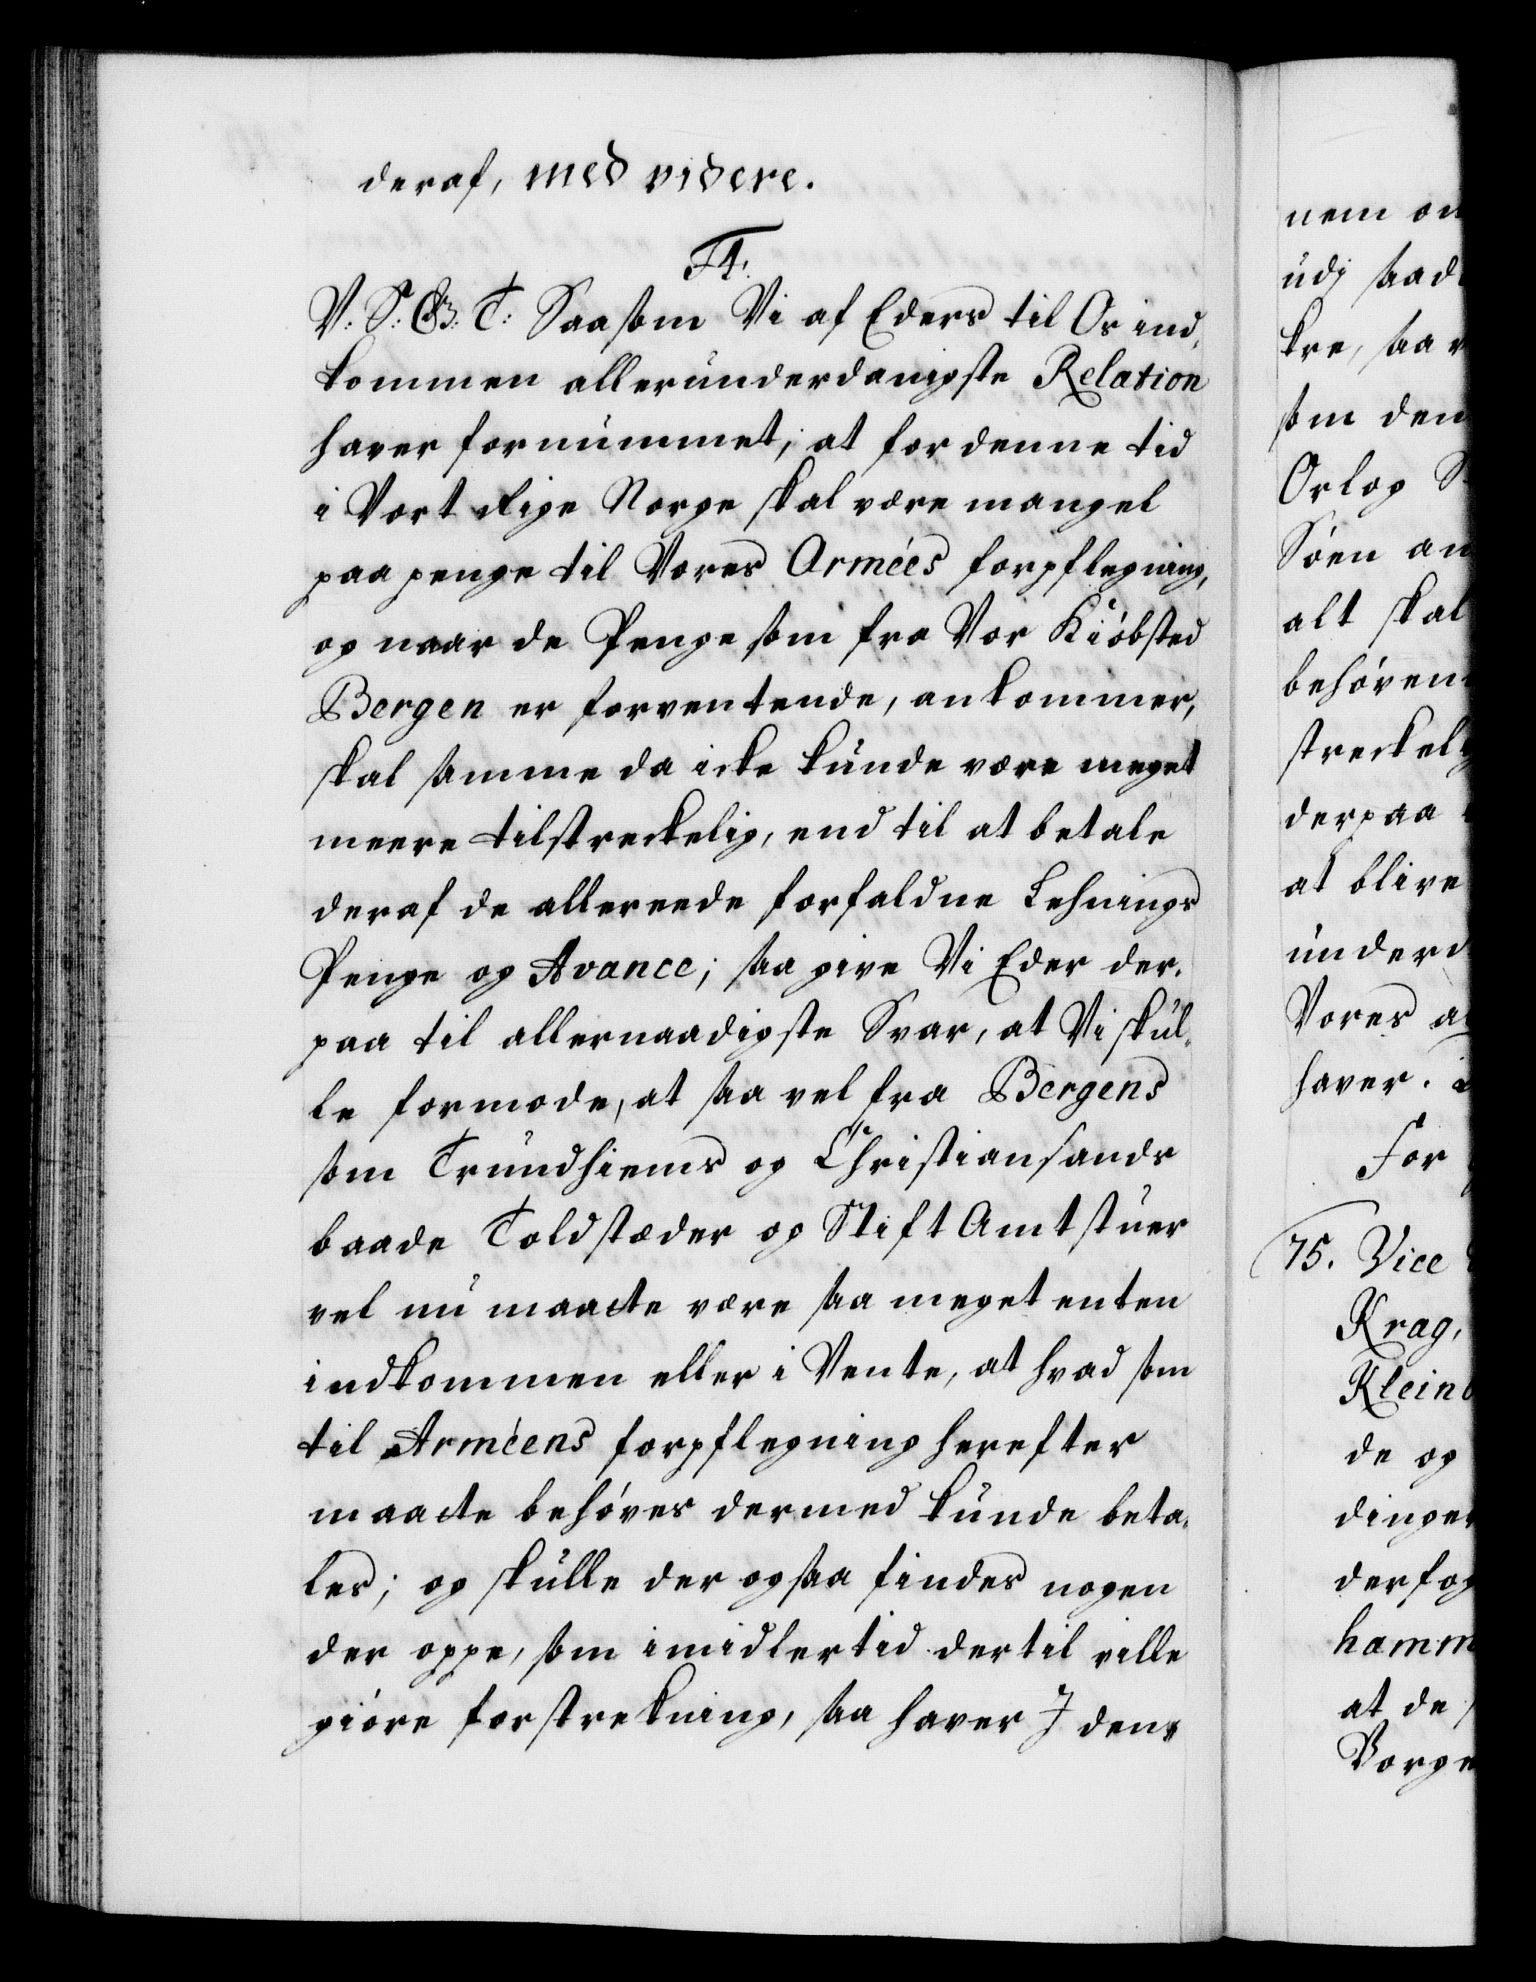 deraf, med videre.
F4.
V: S: G B: T: Saasom Vi af Eders til Os ind,
kommen allerunderdanigste Relation
haver fornummet, at for denne tid
i Vort Rige Norge skal være mangel
paa penge til Vores Armées forpflegning,
og naar de Penge som fra Vor Kiøbsted
Bergen er forventende, ankommer,
skal samme da icke kunde være meget
meere tilstreckelig, end til at betale
deraf de allereede forfaldne Lehnings
Penge og Avance; saa give Vi Eder der,
paa til allernaadigste Svar, at Vi skul,
le formode, at saa vel fra Bergens
som Trundhiems og Christiansands
baade Toldstæder og Stift Amtstuer
vel nu maatte være saa meget enten
indkommen eller i Vente, at hvad som
til Arméens forpflegning herefter
maatte behøves dermed kunde beta,
les; og skulle der ogsaa findes nogen
der oppe, som imidlertid dertil ville
giøre forstrekning, saa haver I den,
nem om
udj saad
kre, saa
som den
Orlog
Søen an
alt skal
behøven
streckel
derpaa
at blive
underd
Vores a
haver.
For
75. Vice
Krag,
Klein
de og
dinger
derfog
hamm
at de
Borge